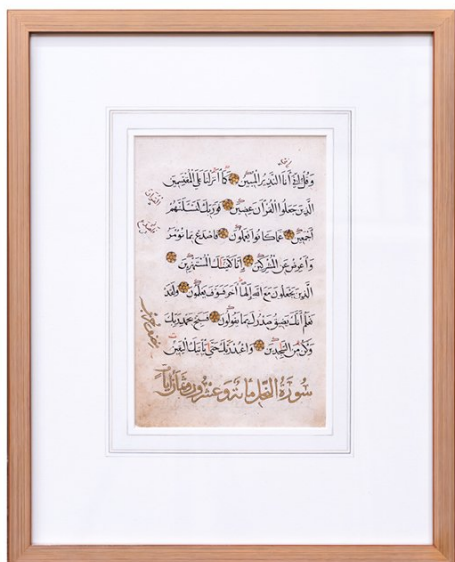 وَقُلْ إِنِّي أَنَا النَّذِيرُ الْمُبِينُ كَمَا أَنْزَلْنَا عَلَى الْمُقْتَسِمِينَ
الَّذِينَ جَعَلُوا الْقُرْآنَ عِضِينَ فَوَرَبِّكَ لَنَسْأَلَنَّهُمْ
أَجْمَعِينَ عَمَّا كَانُوا يَعْمَلُونَ فَاصْدَعْ بِمَا تُؤْمَرُ
وَأَعْرِضْ عَنِ الْمُشْرِكِينَ إِنَّا كَفَيْنَاكَ الْمُسْتَهْزِئِينَ
الَّذِينَ يَجْعَلُونَ مَعَ اللَّهِ إِلَهًا آخَرَ فَسَوْفَ يَعْلَمُونَ وَلَقَدْ
نَعْلَمُ أَنَّكَ يَضِيقُ صَدْرُكَ بِمَا يَقُولُونَ فَسَبِّحْ بِحَمْدِ رَبِّكَ
وَكُنْ مِنَ السَّاجِدِينَ وَاعْبُدْ رَبَّكَ حَتَّى يَأْتِيَكَ الْيَقِينُ
سورة النحل مائة وعشرون وثمان آيات